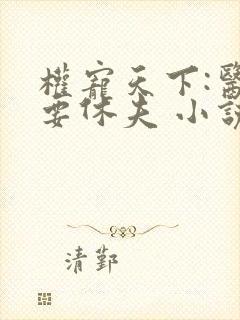 權寵天下:醫
要休夫 小說
清鄞